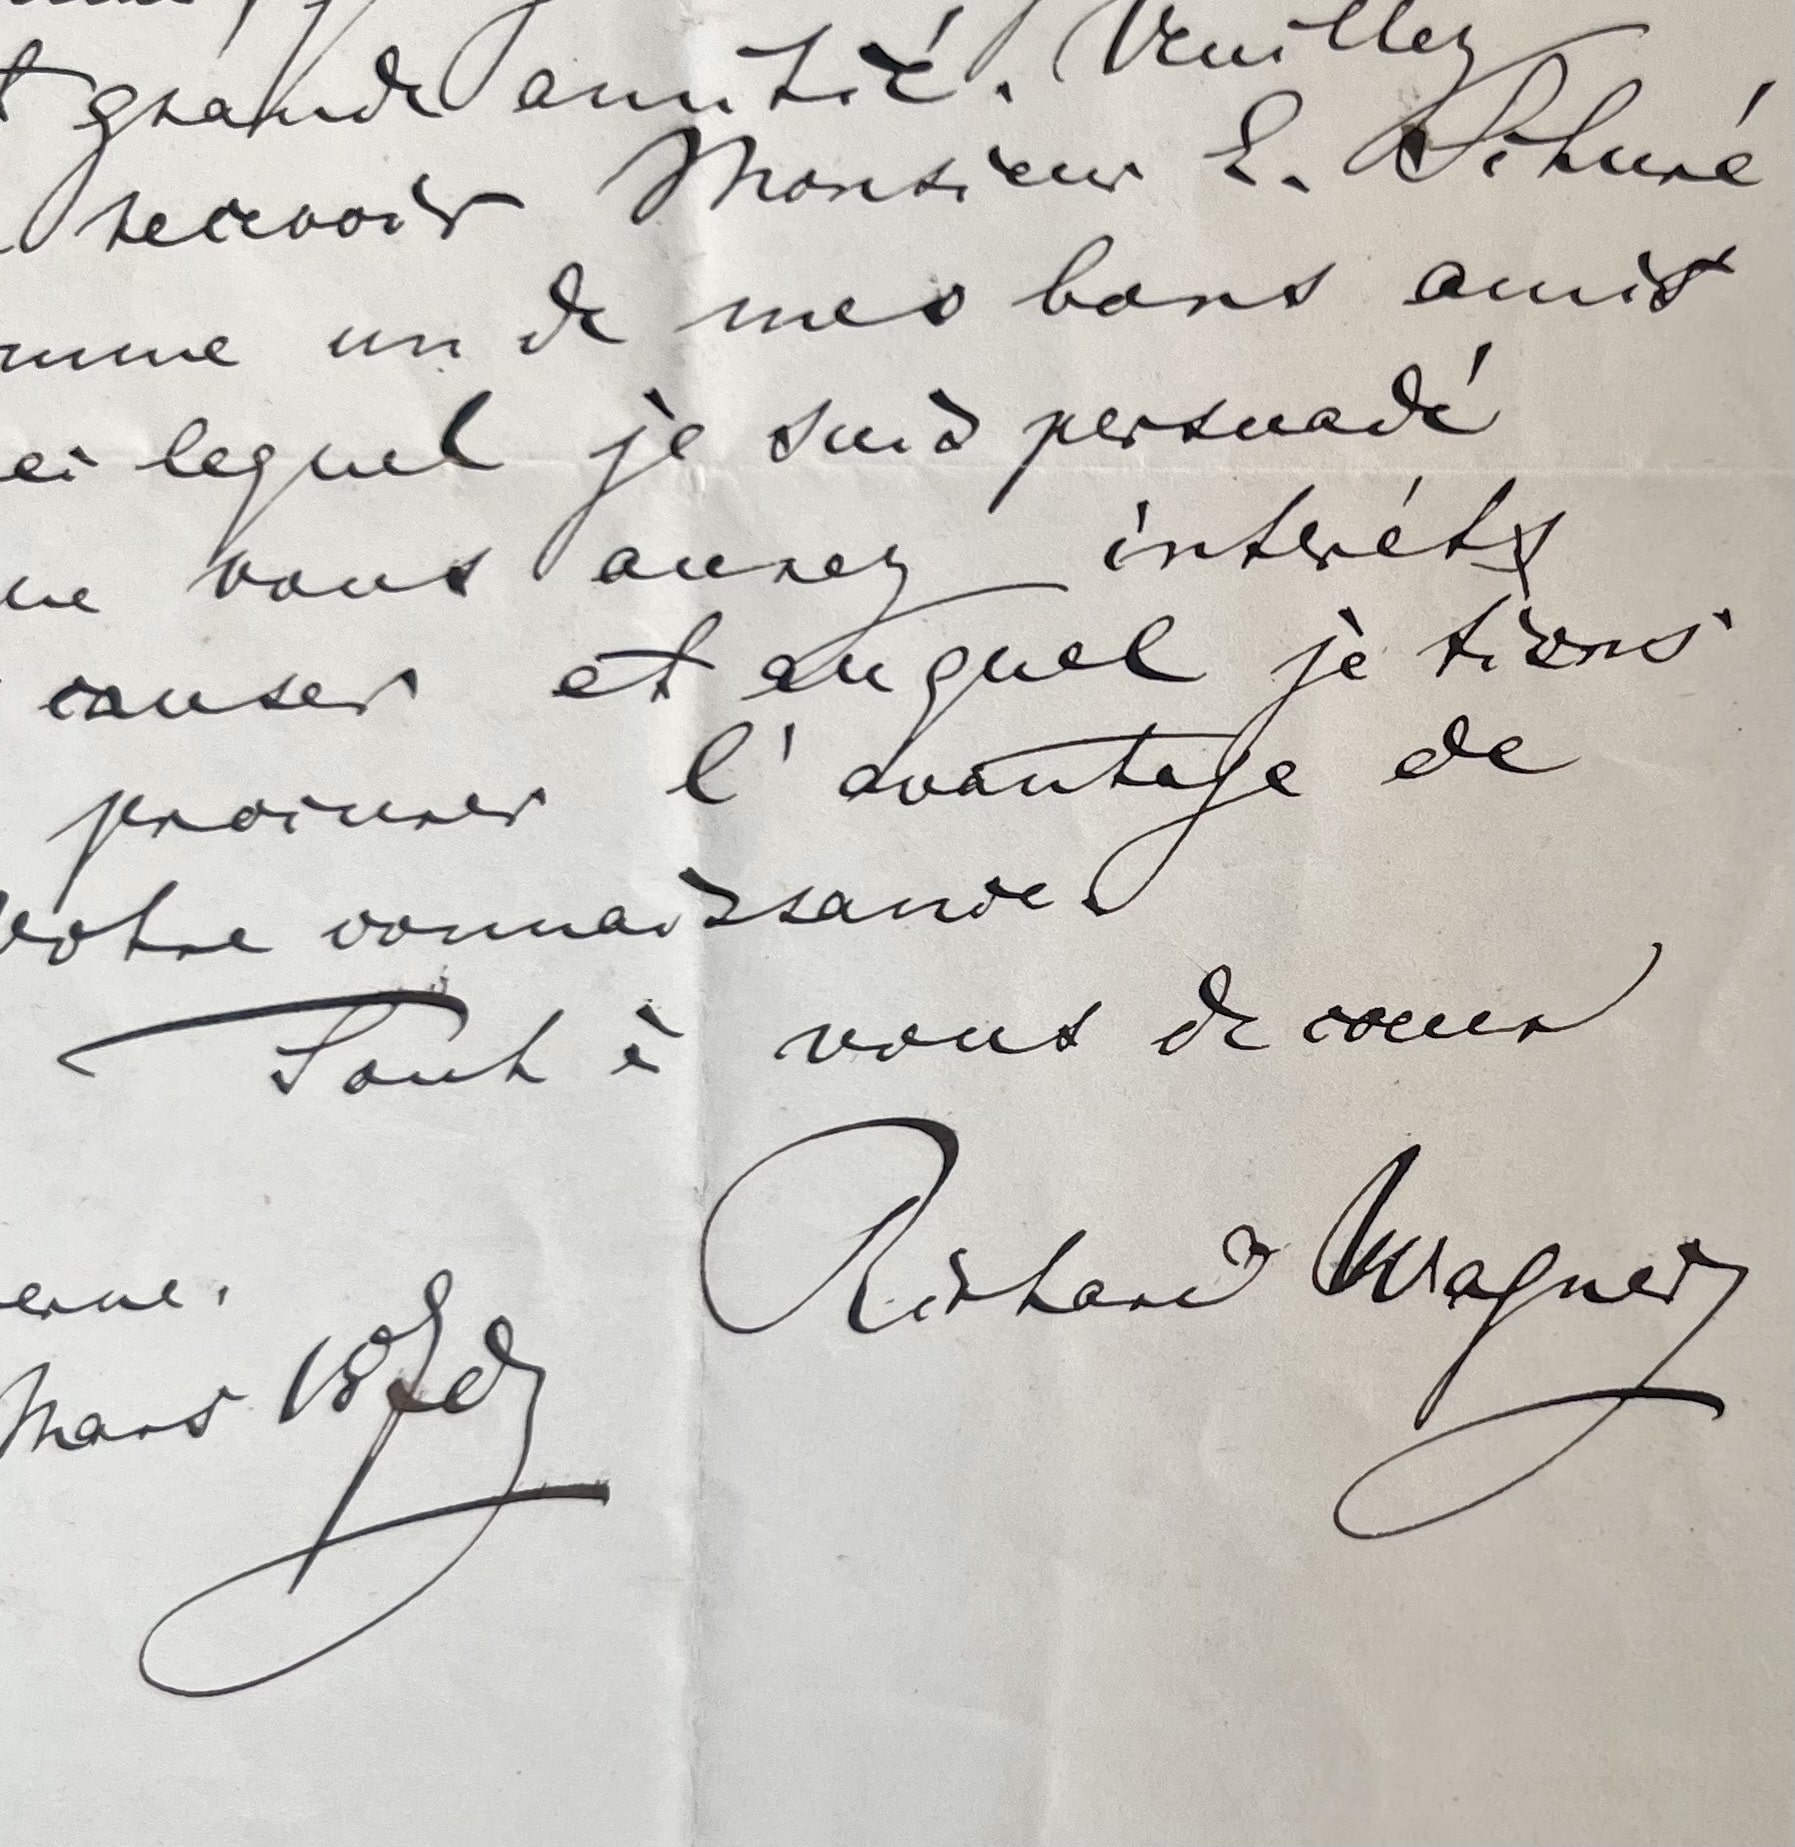 grande amitié. Veuillez
recevoir Monsieur E. Schuré
un de mes bons amis
lequel je suis persuadé
vous aurez intérêts
causer et auquel je tiens
procurer l'avantage de
votre connaissance.
Tout à vous de cœur
Richard Wagner
Mars